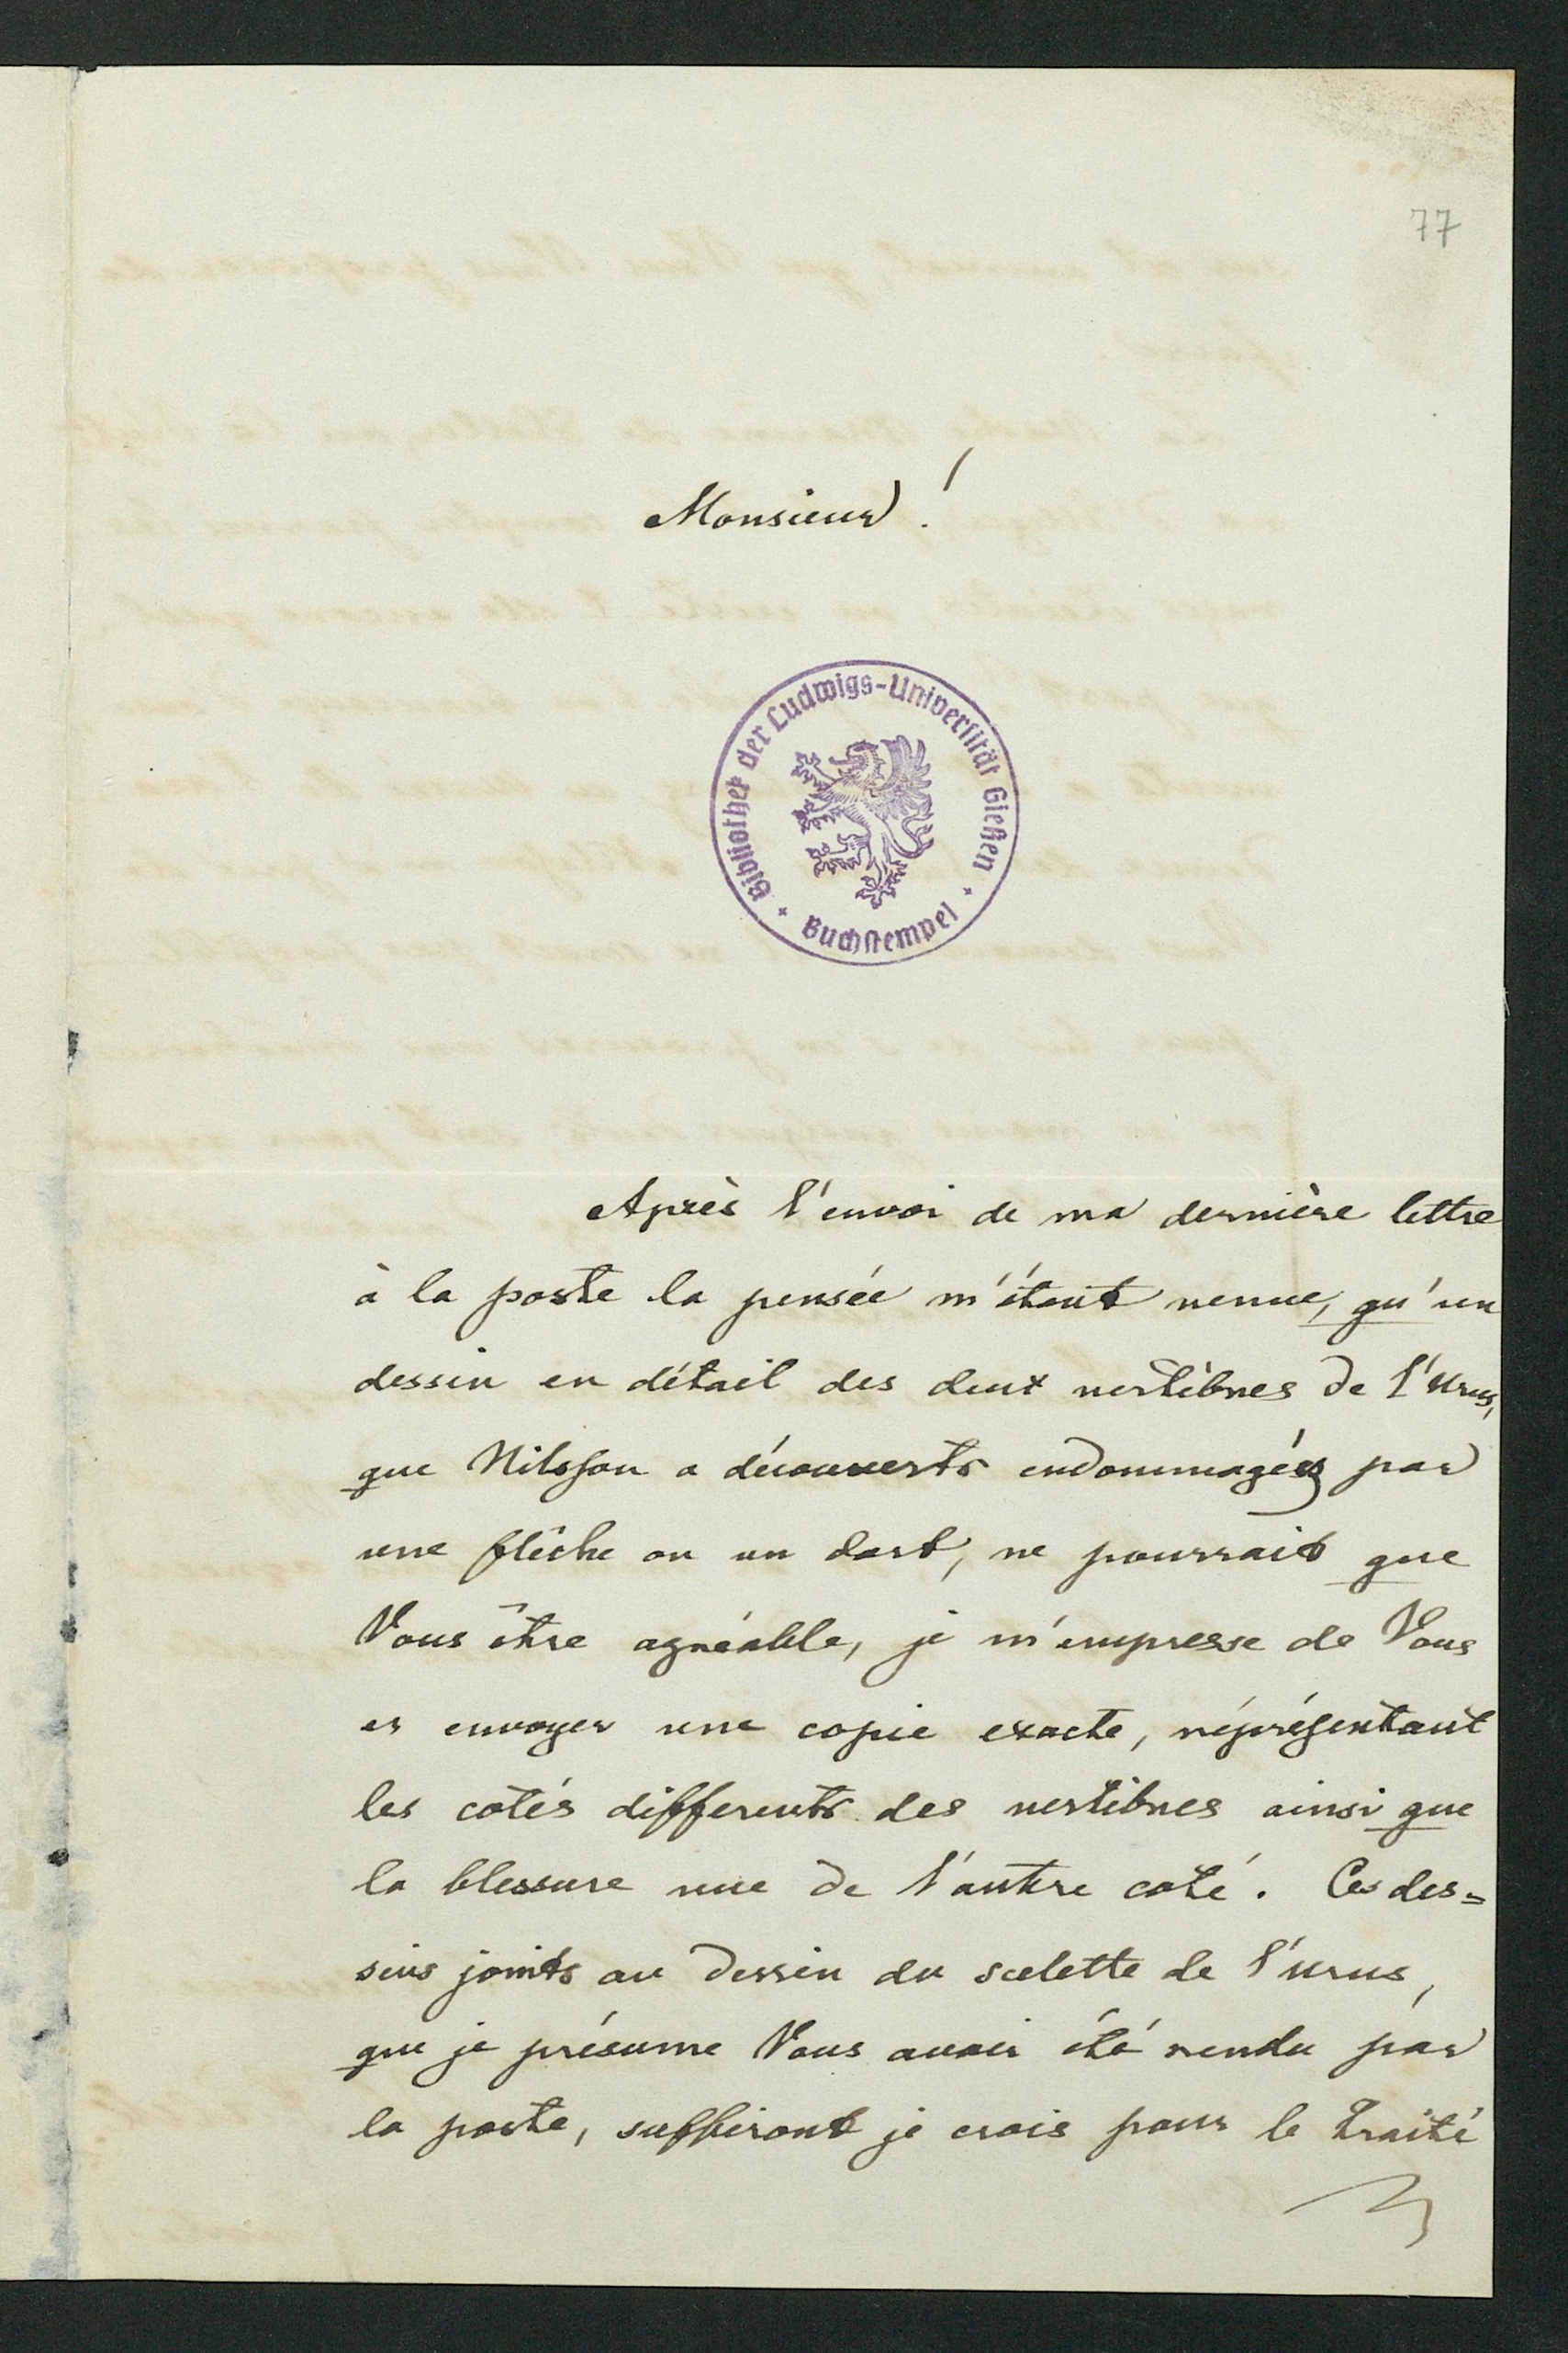 77
Monsieur!
Bibliothek der Ludwigs-Universität Gießen
Buchstempel
Après l'envoi de ma dernière lettre
à la poste la pensée m'étant venue, qu'un
dessin en détail des deux vertèbres de l'Urus,
que Nilsson a découverts endommagées par
une flêche ou un dart, ne pourrait que
Vous être agréable, je m'empresse de Vous
en envoyer une copie exacte, réprésentant
les cotés differents des vertèbres ainsi que
la blessure vue de l'autre coté. Ces des=
sins joints au dessin du scelette de l'urus,
que je présume Vous avoir été rendu par
la poste, suffiront je crois pour le traité